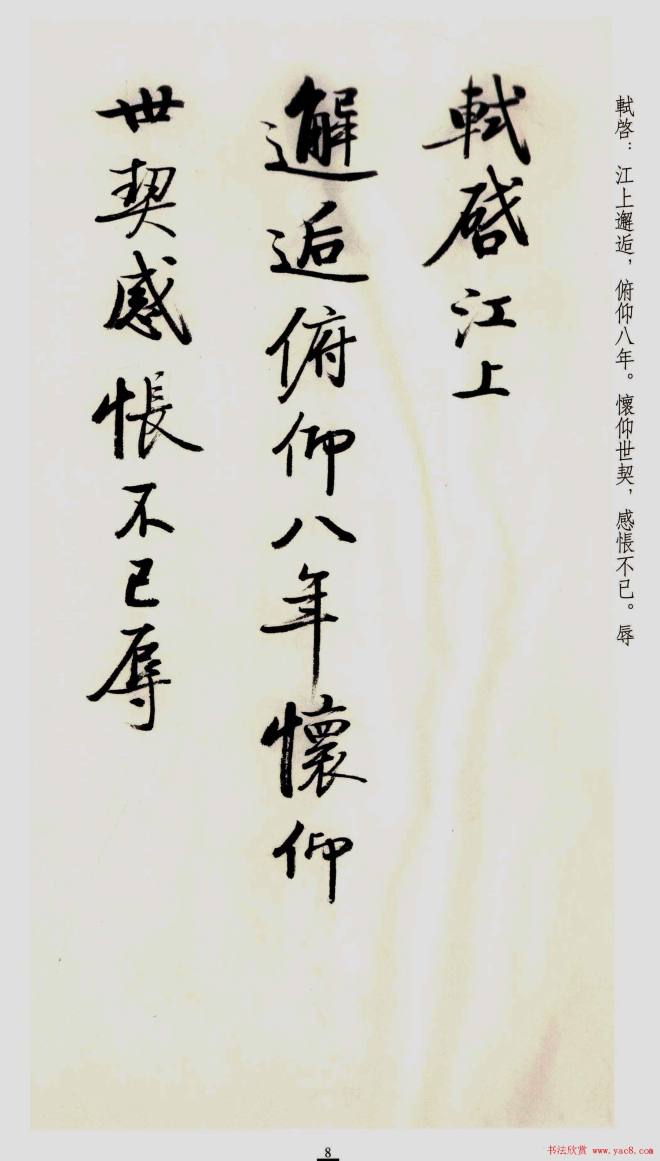 軾啓：江上邂逅，俯仰八年。懷仰世契，感悵不已。辱
軾啓江上
邂逅俯仰八年懷仰
世契感悵不已辱
8
书法欣赏 www.yac8.com